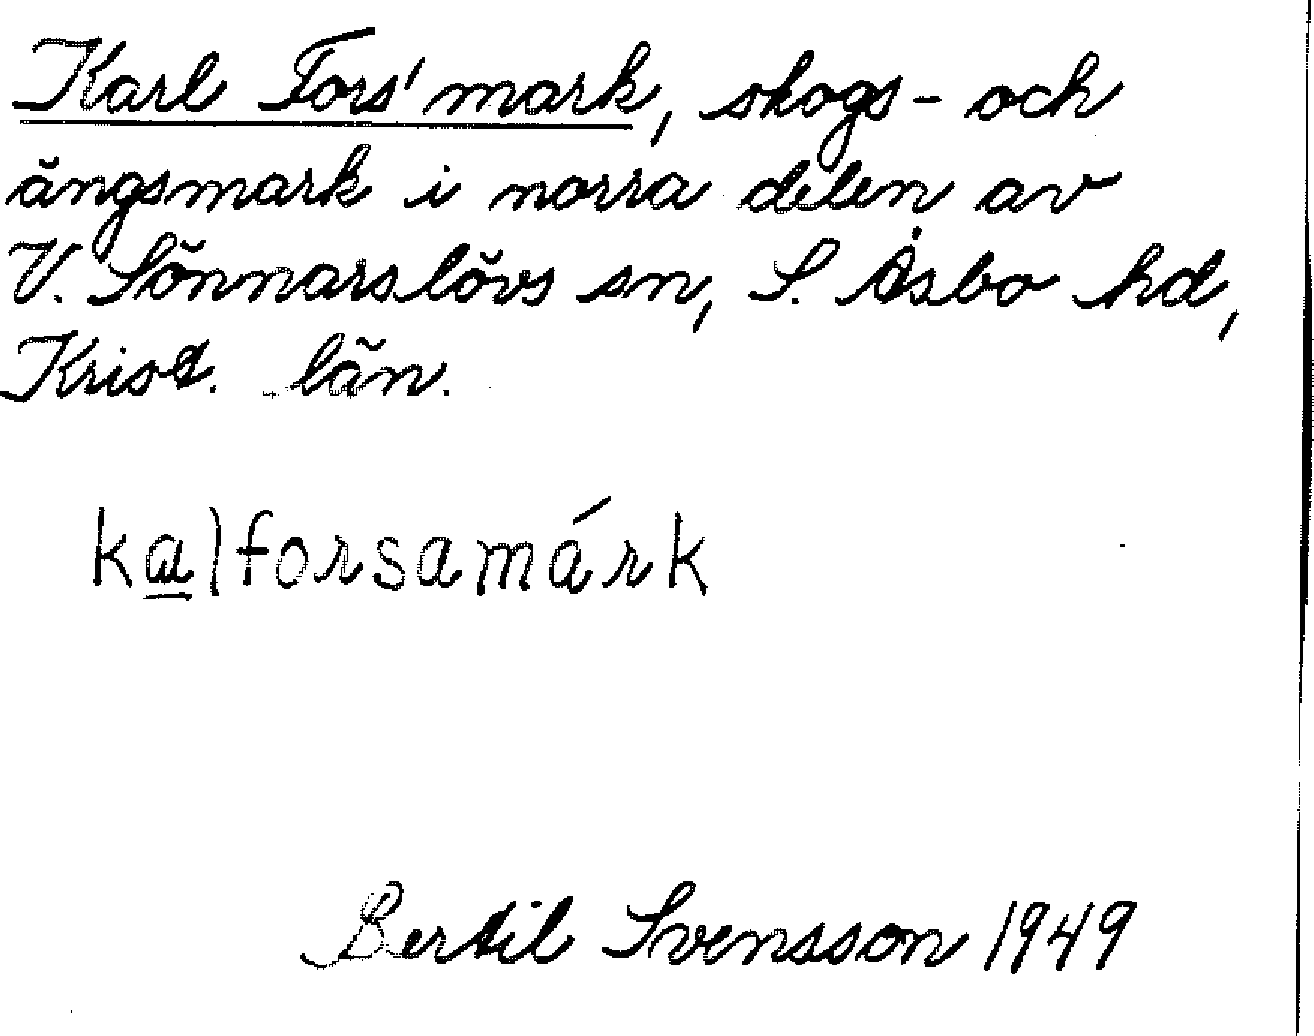 Karl Fors' mark, skogs- och
ängsmark i norra delen av
V. Sönnarslövs sn, S. Åsbo hd,
Krist. län.
ka̲lforsamárk
Bertil Svensson 1949